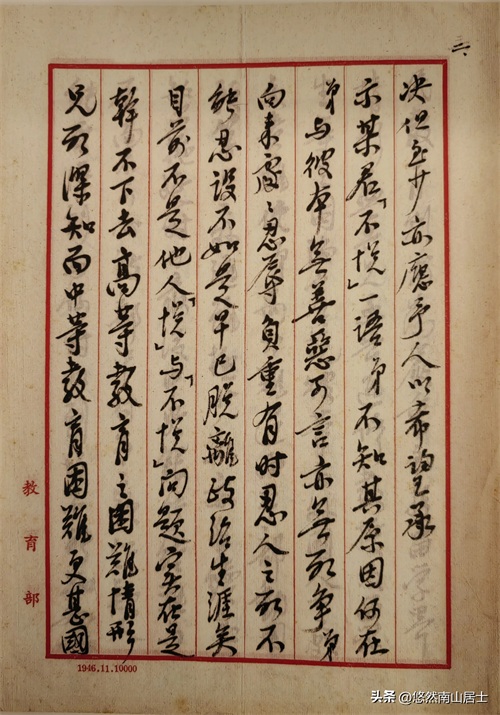 二、
决但至少亦应予人以希望承
示某君「不悦」一语弟不知其原因何在
弟与彼本无善恶可言亦无所争弟
向来处之忍辱负重有时忍人之所不
能忍设不如是早已脱离政治生涯矣
目前不是他人「悦」与「不悦」问题实在是
幹不下去高等教育之困难情形
兄所深知而中等教育困难更甚国
教育部
1946.11.10000
头条 @悠然南山居士